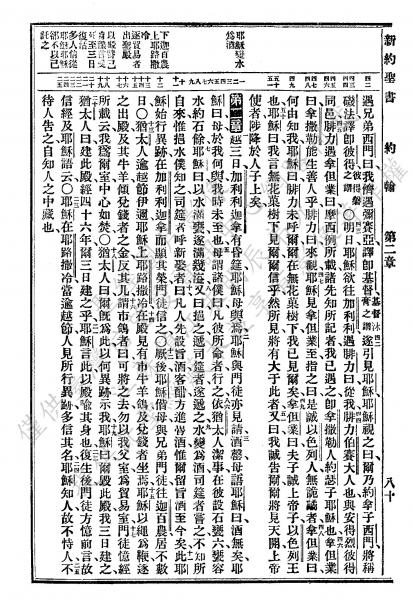 新約聖書 約翰 第二章 八十
遇兄弟西門曰我儕遇彌賽亞譯即基督基督膏之謂遂引見耶穌耶穌視之曰爾乃約拿子西門將稱
磯法譯即彼得彼得磐之謂○明日耶穌欲往加利利遇腓力曰從我腓力伯賽大人也與安得烈彼得
同邑腓力遇拿但業曰摩西例所載諸先知所記者我已遇之即拿撒勒人約瑟子耶穌也拿但業曰
拿撒勒能出善人乎腓力曰來觀耶穌見拿但業至指之曰是誠以色列人無詭譎者拿但業曰
何由知我耶穌曰腓力未呼爾爾在無花果樹下我已見爾矣拿但業曰夫子誠上帝子以色列王
也耶穌曰我言無花果樹下見爾爾信乎然所見將有大於此者又曰我誠告爾爾將見天開上帝
使者陟降於人子上矣
耶穌變水為酒
第二章 越三日加利利迦拿有昏筵耶穌母與焉耶穌與門徒亦見請酒罄母語耶穌曰酒無矣耶
穌曰母與我何與我時未至也母謂諸僕曰凡彼所命者行之依猶太人潔事在彼設石甕六甕容
水約石餘耶穌曰以水滿甕遂滿幾溢又曰挹之遞司筵者遂遞之水變為酒司筵者嘗之不知所
自來惟挹水僕知之司筵者呼新娶者曰凡人先設旨酒客酣方進魯酒惟爾留旨酒至今矣此耶
穌始行異跡在加利利迦拿而顯其榮門徒信之○厥後耶穌偕母與兄弟門徒往迦百農居不數
日○猶太人逾越節伊邇耶穌上耶路撒冷在殿見有市牛羊鴿及兌錢者坐焉耶穌以繩為鞭逐
之出殿及其牛羊傾兌錢者之金反其几謂市鴿者曰可將之去勿以我父室為貿易室門徒憶經
所載云我為爾室中心如焚○猶太人曰爾既為此以何異跡示我耶穌曰爾毀此殿我三日建之
猶太人曰建此殿經四十六年爾三日建之乎耶穌言此以殿喻其身也復生後門徒方憶前言故
信經及耶穌語云○耶穌在耶路撒冷當逾越節人見所行異跡多信其名耶穌知人故不恃人不
待人告之自知人之中藏也
下迦百農
上耶路撒
冷
逐貿易者
出聖殿
以殿譬己
死至三日
復活
多人信從
耶穌耶穌
卻不以己
託之